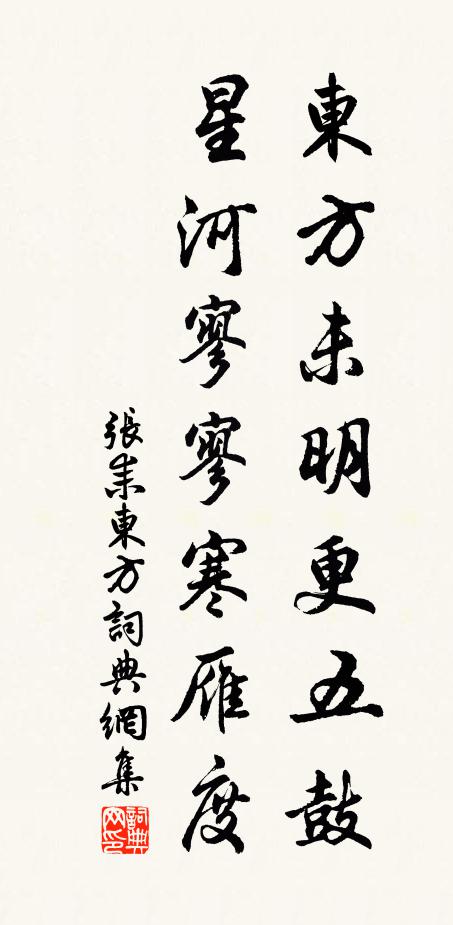 東方未明更五鼓
星河寥寥寒雁度
張耒東方詞典網集
詞典網印